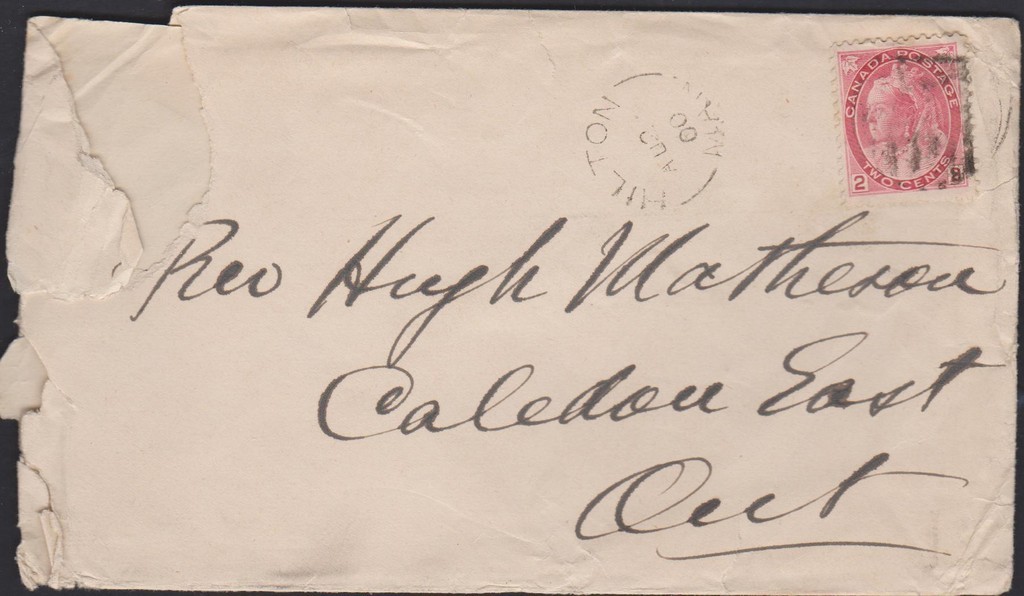 CANADA POSTAGE
TWO CENTS
2
HILTON MAN
AUG
00
Rev Hugh Matheson
Caledon East
Ont